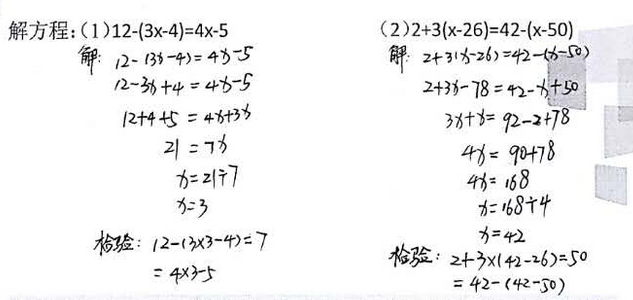 解方程：(1)12-(3x-4)=4x-5
解: 12-(3x-4)=4x-5
12-3x+4=4x-5
12+4+5=4x+3x
21=7x
x=21÷7
x=3
检验: 12-(3×3-4)=7
=4×3-5
(2)2+3(x-26)=42-(x-50)
解: 2+3(x-26)=42-(x-50)
2+3x-78=42-x+50
3x+x=92-2+78
4x=90+78
4x=168
x=168÷4
x=42
检验: 2+3×(42-26)=50
=42-(42-50)